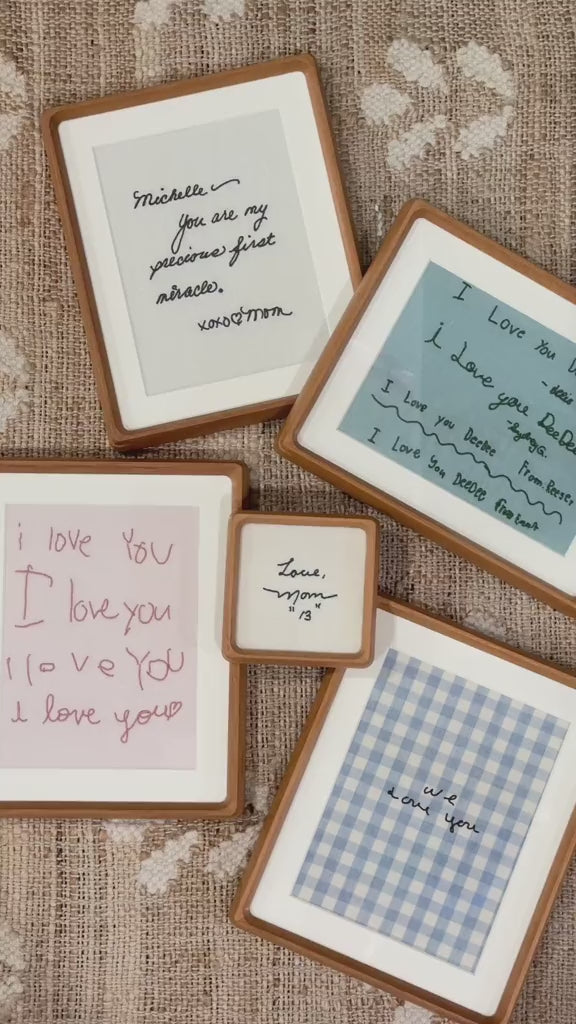 Michelle
you are my
precious first
miracle.
xoxo♡Mom
I Love You
i Love you DeeDee
I Love you DeeDee From Reeser
I Love You DeeDee
i love You
I love you
I love You
i love you♡
Love,
Mom
"13"
we
love you